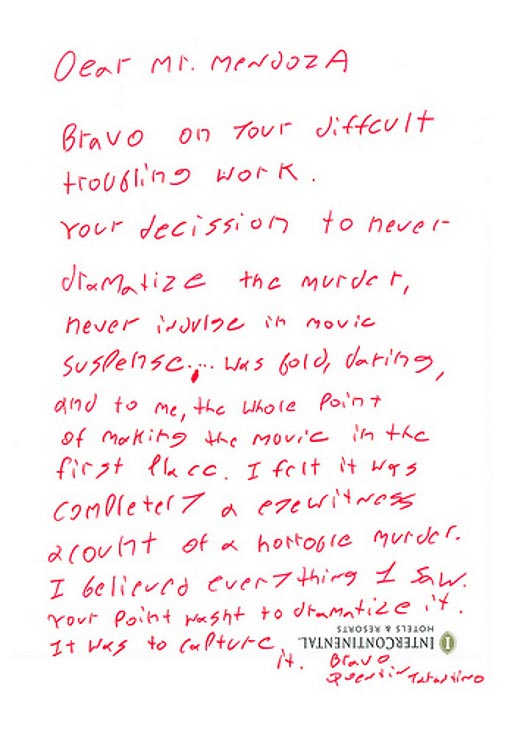 Dear Mr. MENDOZA
Bravo on your diffcult
troubling work.
Your decission to never
dramatize the murder,
never indulge in movie
suspense.... was bold, daring,
and to me, the whole point
of making the movie in the
first place. I felt it was
completery a eyewitness
acount of a horrogie murder.
I believed everything I saw.
Your point wasnt to dramatize it.
It was to capture it. Bravo
Quentin Tarantino
INTERCONTINENTAL
HOTELS & RESORTS